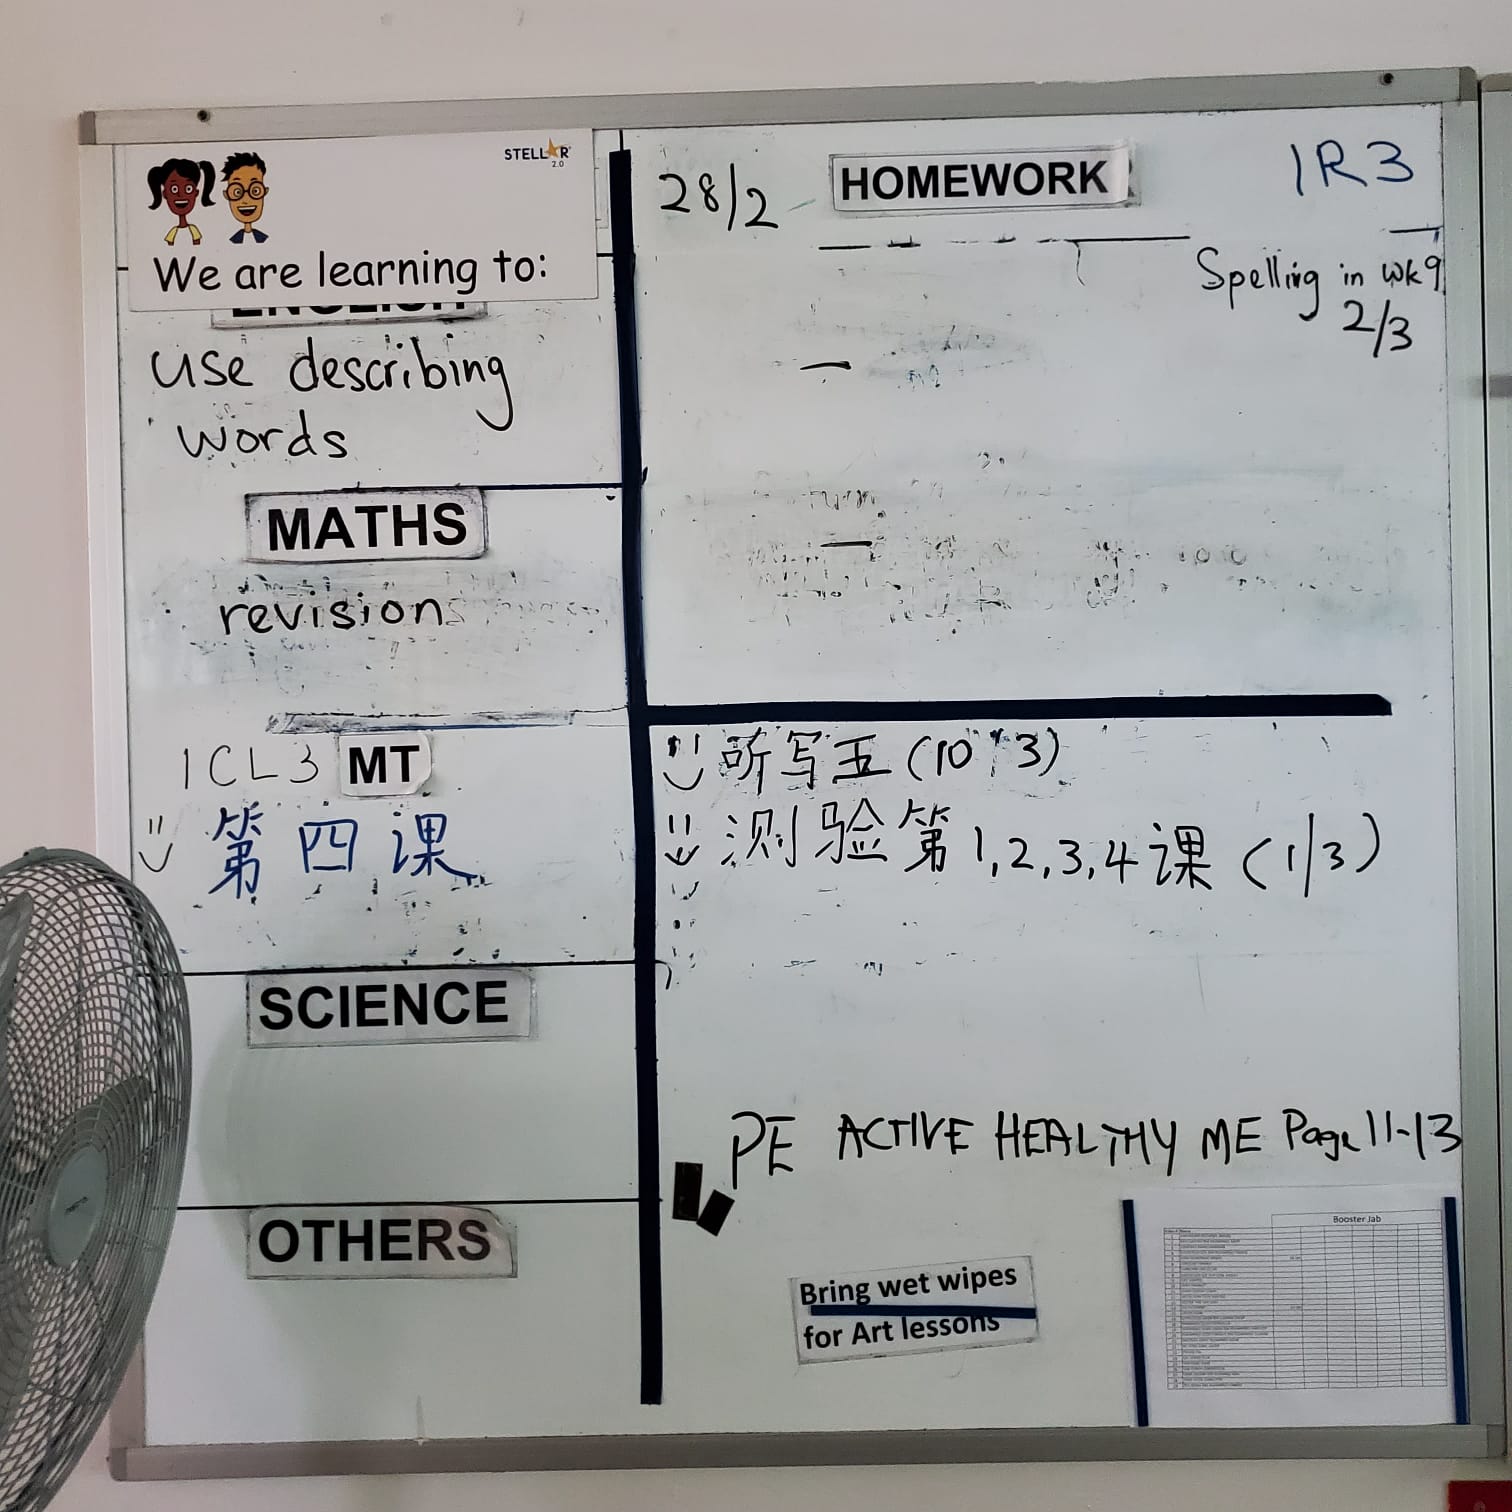 STELLAR 2.0
We are learning to:
ENGLISH
use describing
words
MATHS
revision
1CL3 MT
第四课
SCIENCE
OTHERS
28/2 HOMEWORK 1R3
Spelling in wk 9
2/3
听写五 (10 3)
测验第1,2,3,4课 (1/3)
PE ACTIVE HEALTHY ME Page 11-13
Bring wet wipes
for Art lessons
Booster Jab